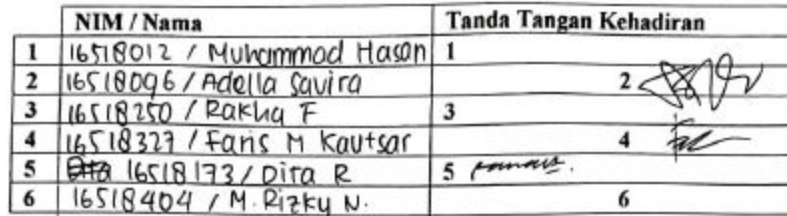 NIM / Nama Tanda Tangan Kehadiran
1 16518012 / Muhammad Hasan 1
2 16518096 / Adella Savira 2
3 16518250 / Rakha F 3
4 16518327 / Faris M Kautsar 4
5 16518173 / Dita R 5
6 16518404 / M. Rizky N. 6